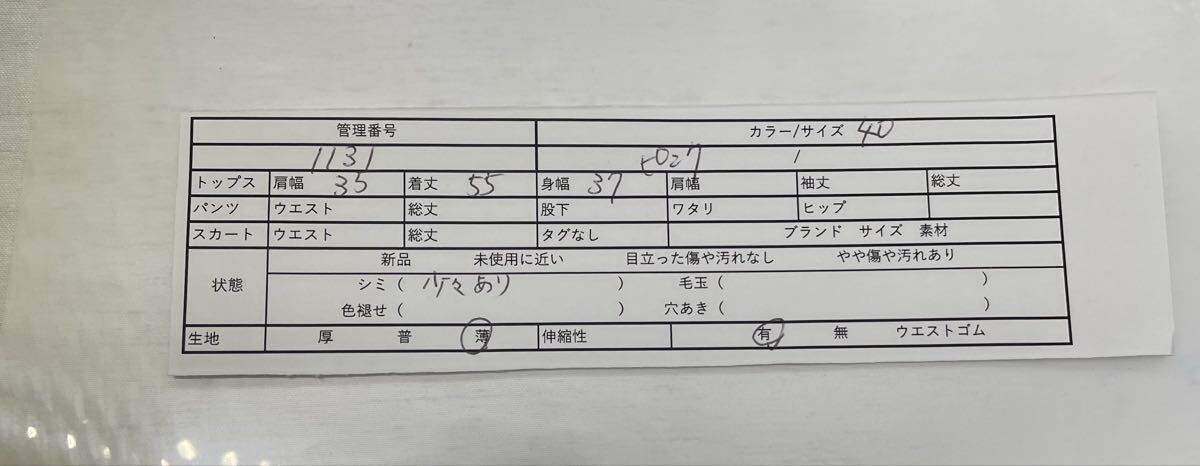 管理番号 カラー/サイズ 40
1131 /
トップス 肩幅 35 着丈 55 身幅 37 肩幅 袖丈 総丈
パンツ ウエスト 総丈 股下 ワタリ ヒップ
スカート ウエスト 総丈 タグなし ブランド サイズ 素材
状態 新品 未使用に近い 目立った傷や汚れなし やや傷や汚れあり
シミ ( 少々あり ) 毛玉 ( )
色褪せ ( ) 穴あき ( )
生地 厚 普 薄 伸縮性 有 無 ウエストゴム